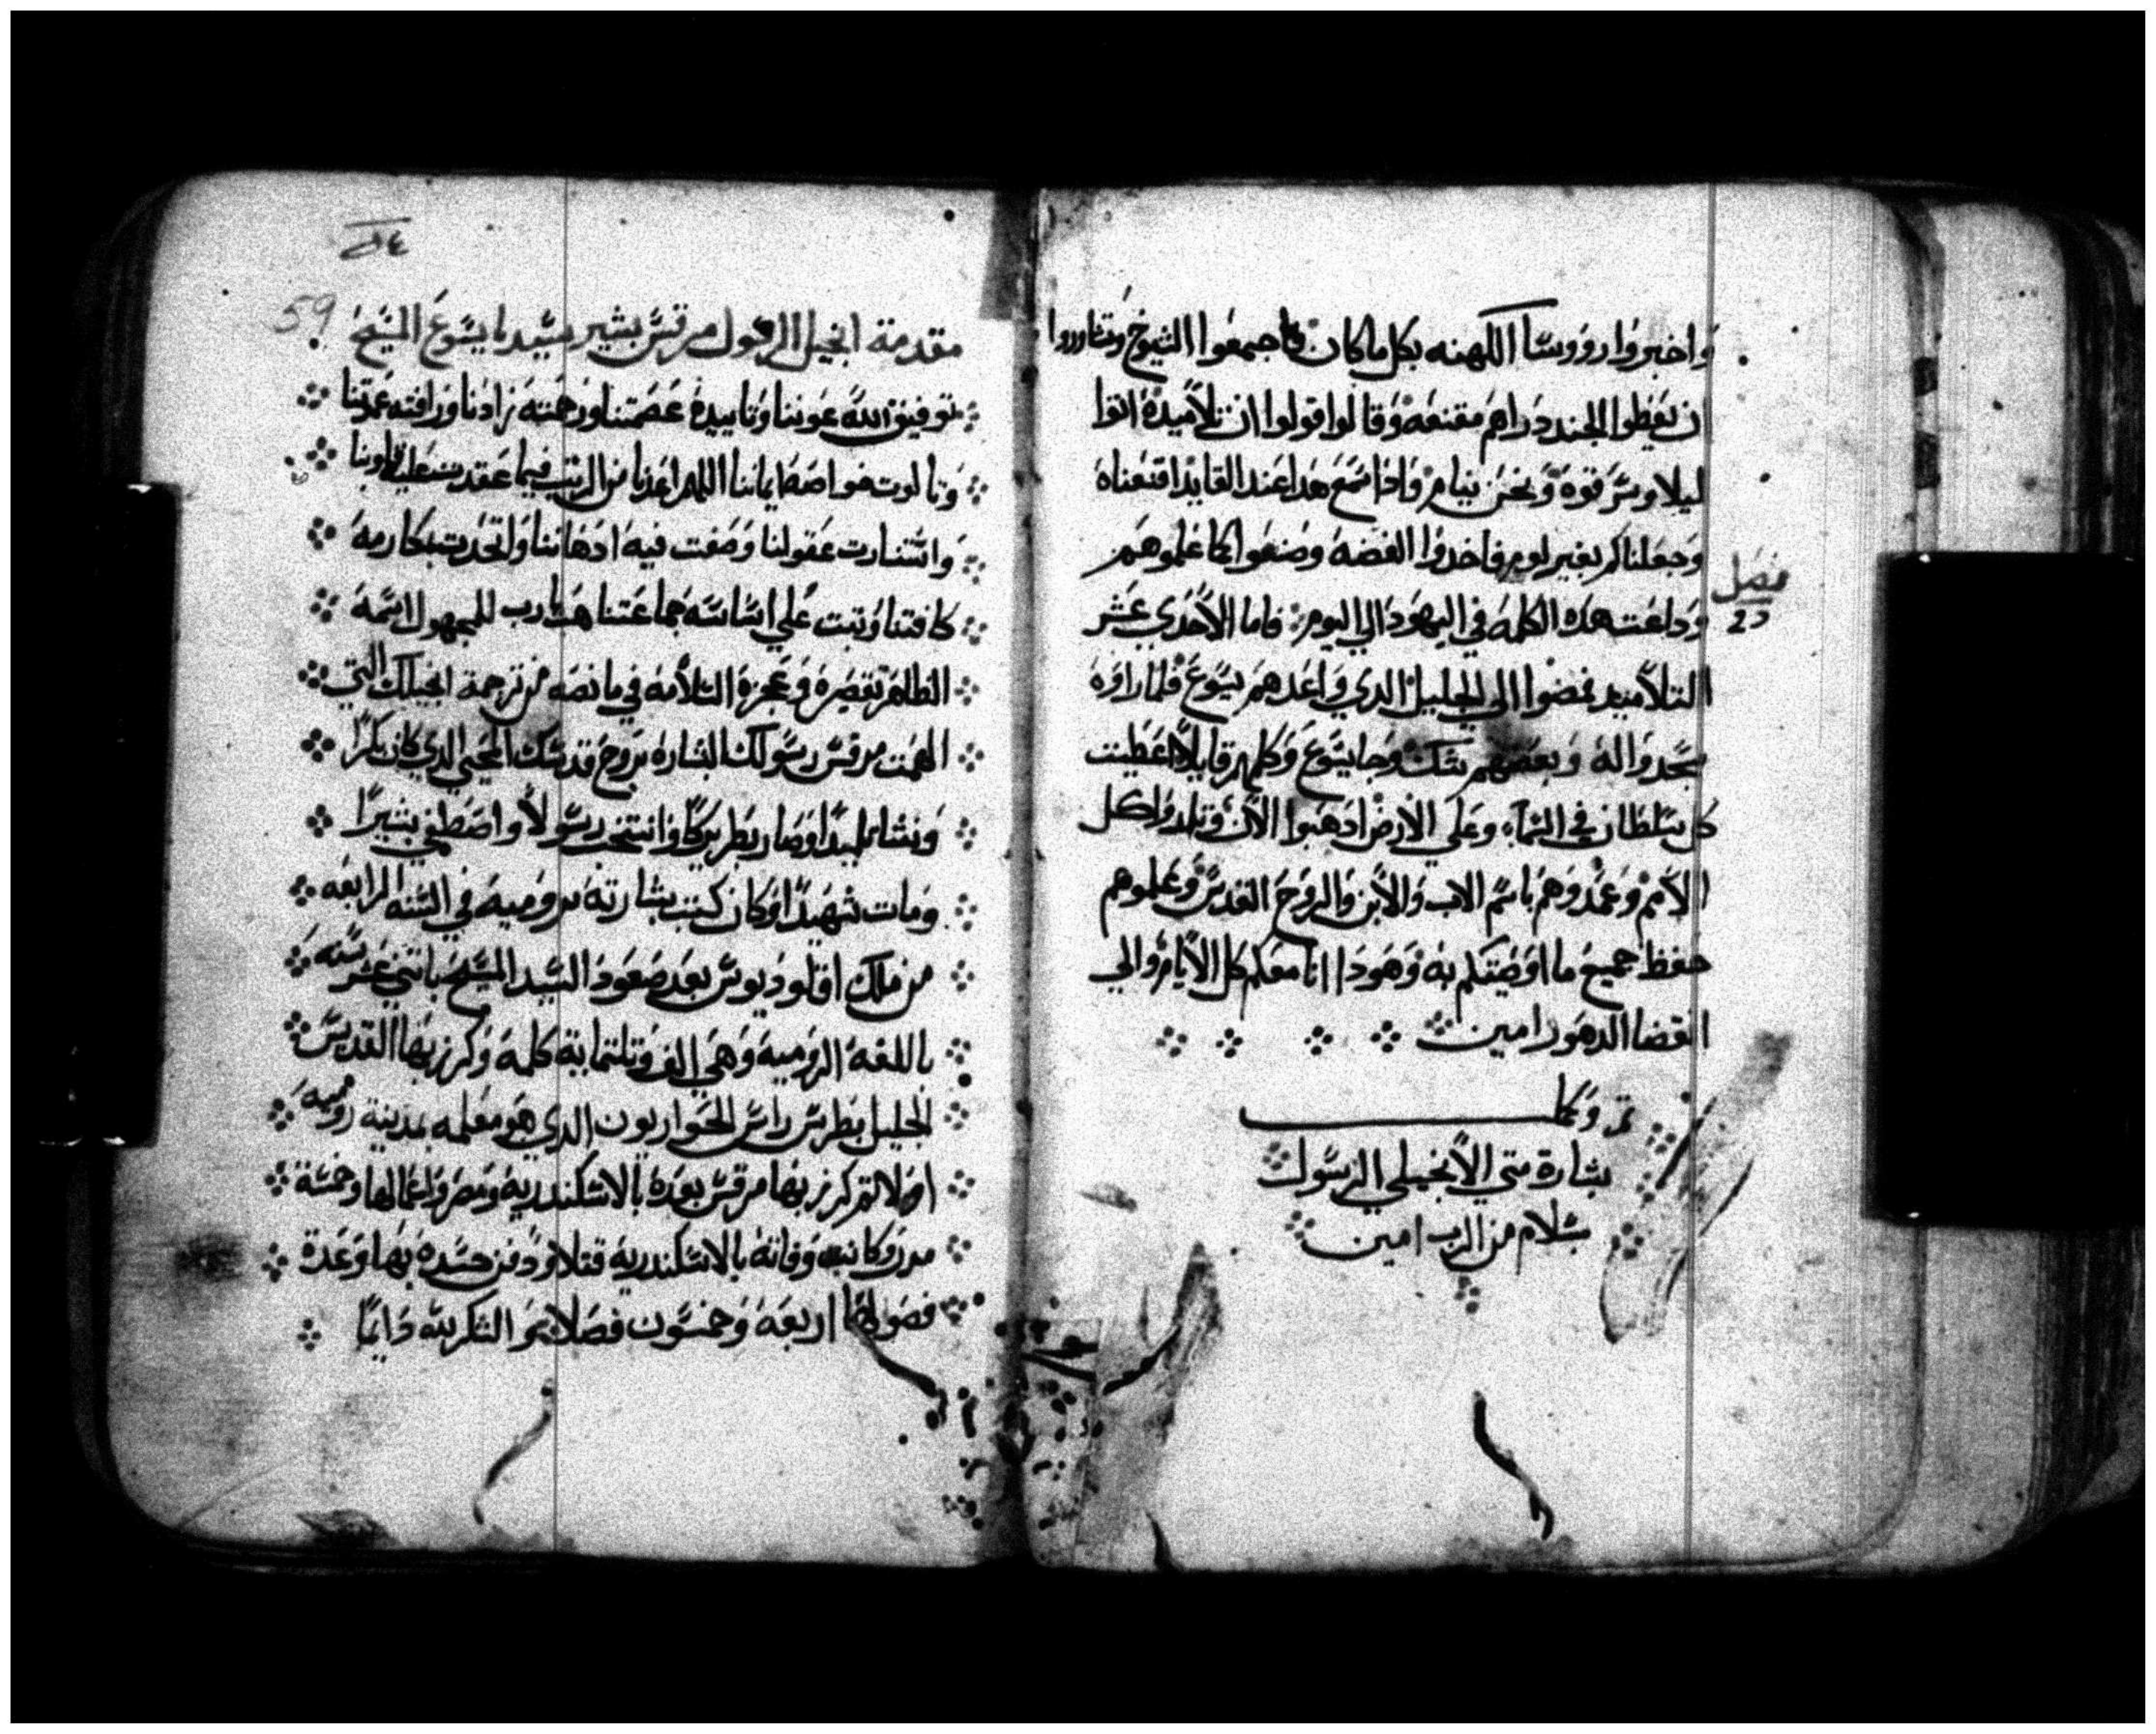 واخبروا رووسا الكهنه بكل ما كان فاجمعوا الشيوخ وتشاوروا
ان يعطوا الجند دراهم مقنعه وقالوا قولوا ان تلاميده اتوا
ليلا وسرقوه ونحن نيام وادا سمع هدا عند القايد اقنعناه
وجعلناكم بغير لوم فاخدوا الفضه وصنعوا كما علموهم
وداعت هده الكلمه في اليهود الي اليوم فاما الاحدي عشر
فصل
التلاميد فمضوا الي الجليل الدي واعدهم يسوع فلما راوه
سجدوا له وبعضهم شك وجا يسوع وكلمهم قايلا اعطيت
كل سلطان في السماء وعلي الارض ادهبوا الان وتلمدوا كل
الامم وعمدوهم باسم الاب والابن والروح القدس وعلموهم
حفظ جميع ما اوصيتكم به وهودا انا معكم كل الايام والي
انقضا الدهور امين
تم وكما
بشارة متي الانجيلي الرسول
سلام من الرب امين
59
مقدمة انجيل الرسول مرقس بشير سيدنا يسوع المسيح
توفيق الله عوننا وتاييده عصمتنا ورحمته زادنا ورافته عمدتنا
وتالوت خواصه ايماننا اللهم اعدنا من الريب فيما عقدت عليه قلوبنا
واستنارت عقولنا وصفت فيه ادهاننا واتحدت بكاريه
كافتنا وتبت علي اساسه جماعتنا هب يارب للمجهول اسمه
الظاهر تقصيره وعجزه السلامه في ما نصه من ترجمة انجيلك التي
الهمت مرقس رسولك البشاره بروح قدسك المحيي الدي كان بكرا
ونشا تلميدا وصار بطريركا وانتخب رسولا واصطفي بشيرا
ومات شهيدا وكان كتب بشارته بروميه في السنه الرابعه
من ملك اقلوديوس بعد صعود السيد المسيح باتني عشر سنه
باللغه الروميه وهي الف وتلتمايه كلمه وكرز بها القديس
الجليل بطرس راس الحواريون الدي هو معلمه بمدينة روميه
اولا تم كرز بها مرقس بعده بالاسكندريه ومصر واعمالها وخمسة
مدن وكانت وفاته بالاسكندريه قتلا ودفن جسده بها وعدة
فصولها اربعه وخمسون فصلا نمو الشكر لله دايما